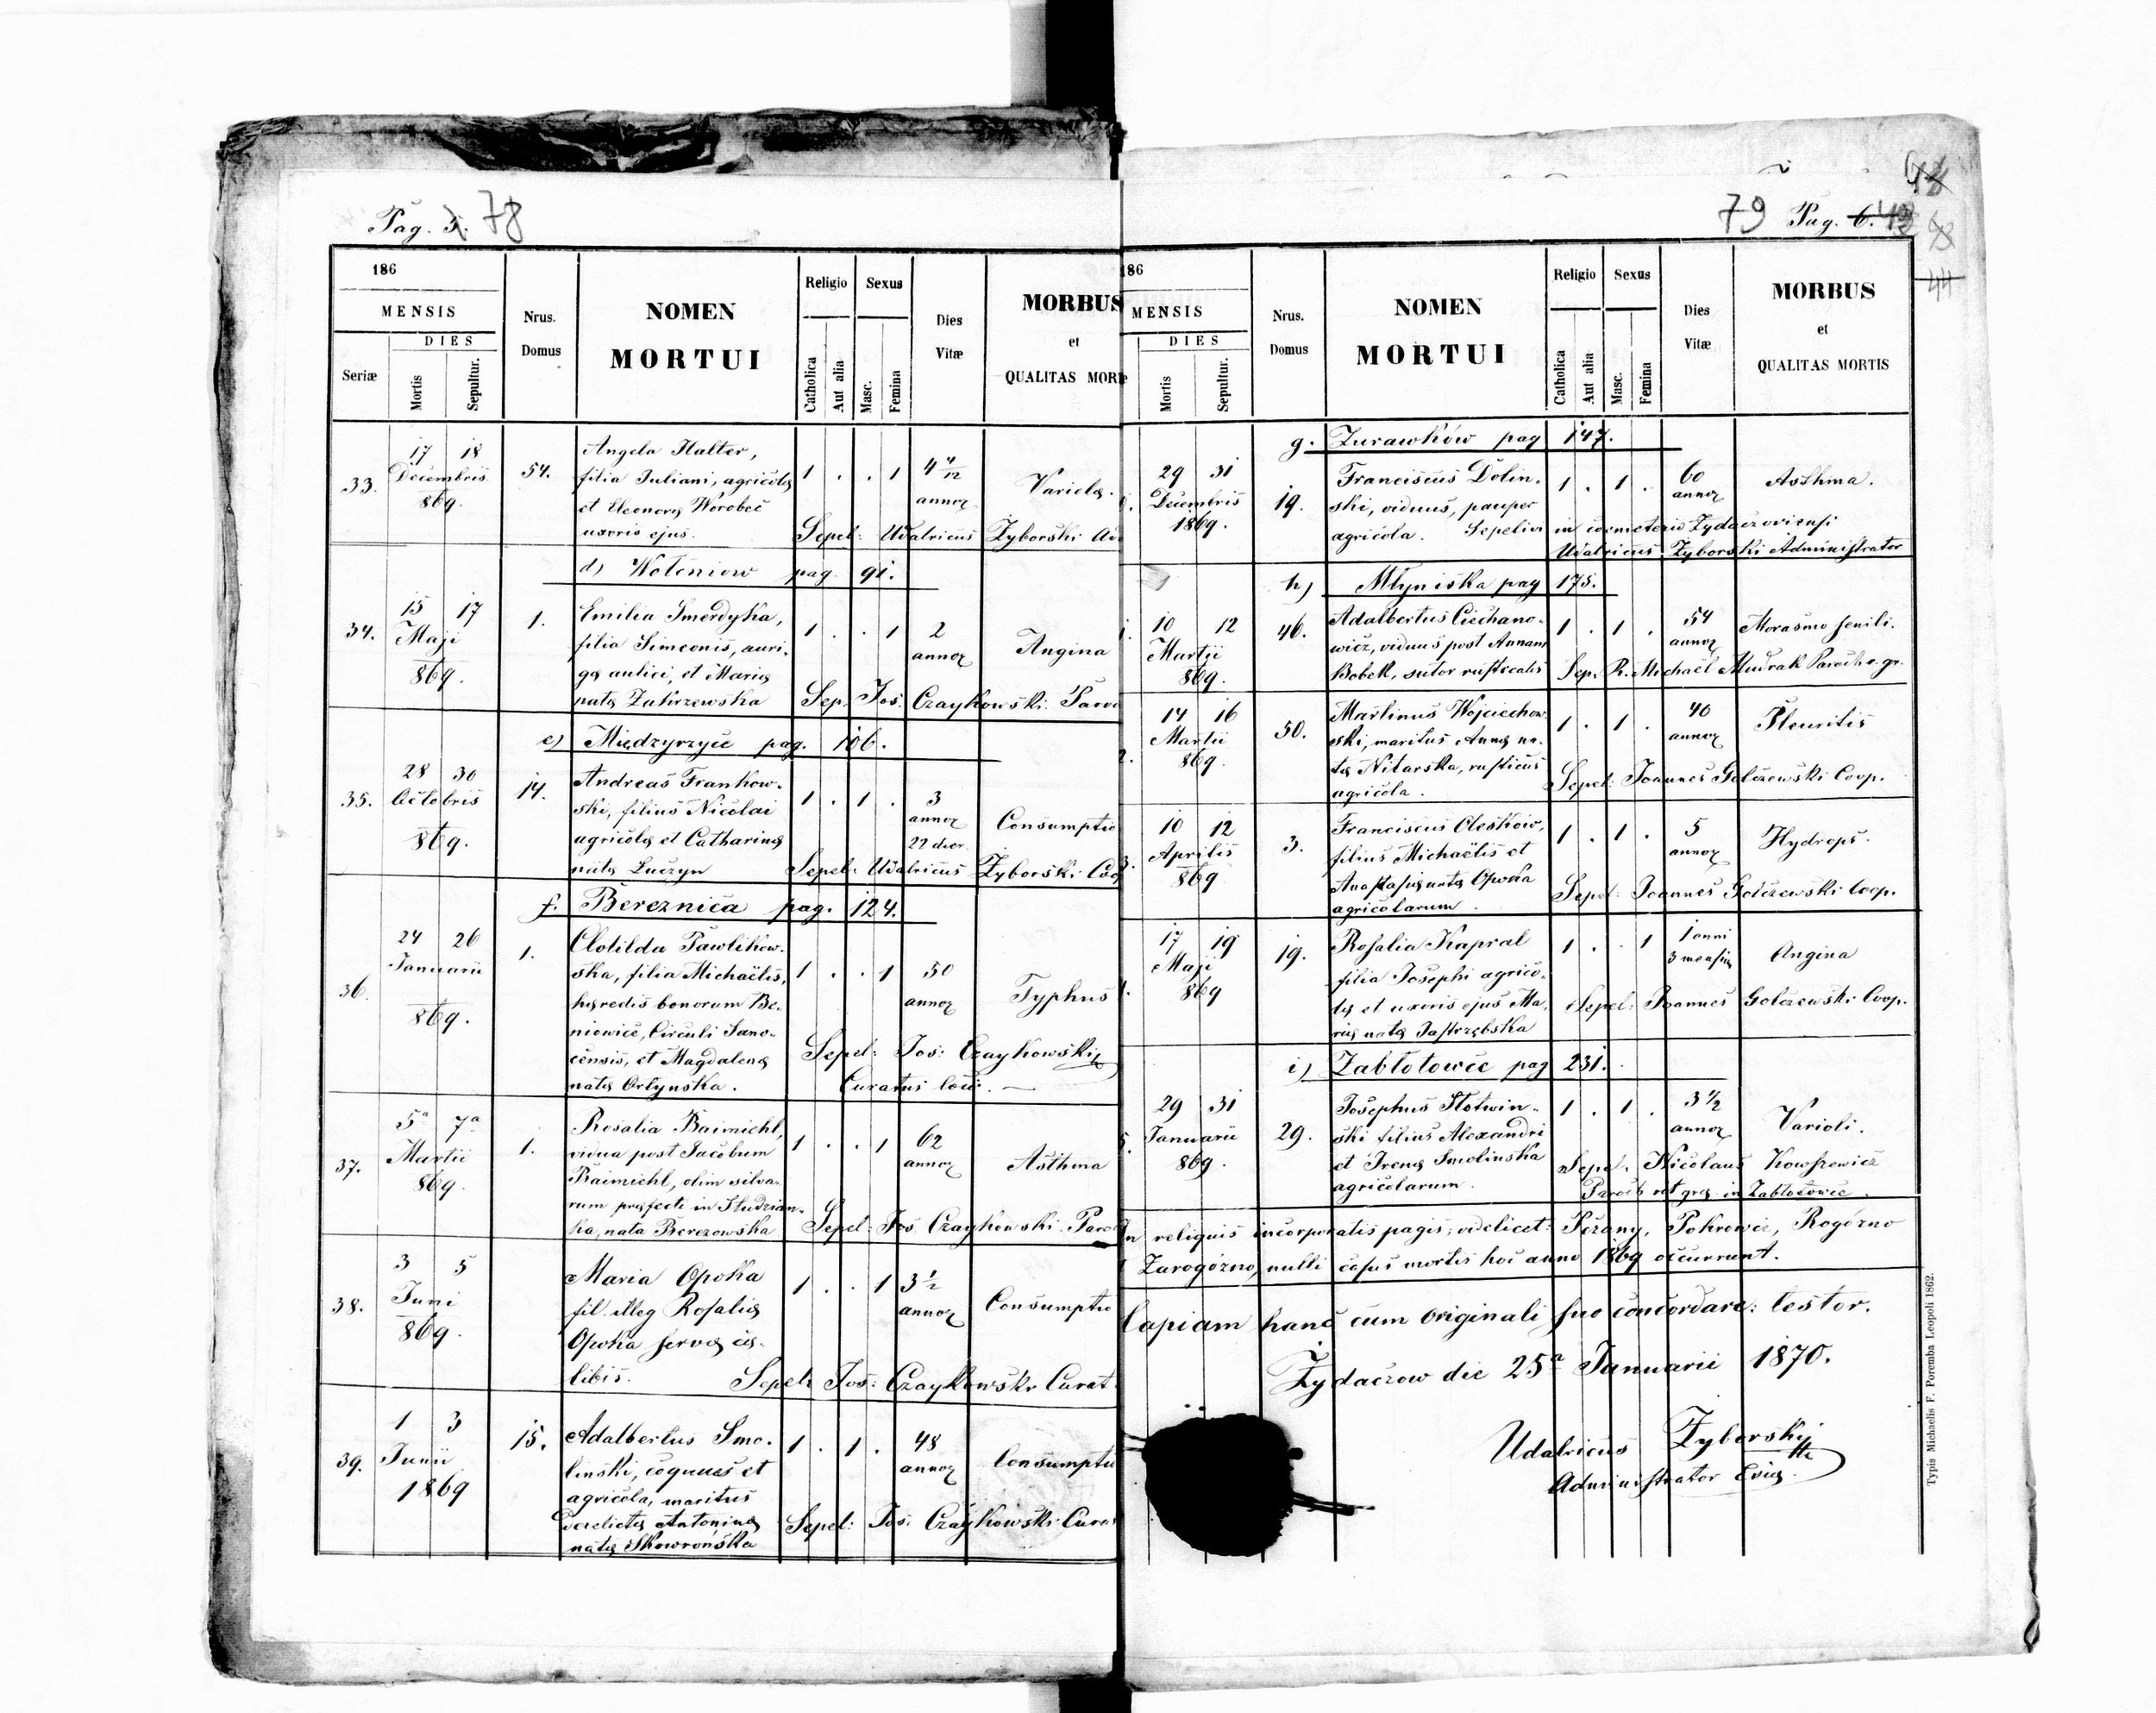 Pag. 5. 78
186
MENSIS
DIES
Seriæ
Mortis
Sepultur.
Nrus.
Domus
NOMEN
MORTUI
Religio
Catholica
Aut alia
Sexus
Masc.
Femina
Dies
Vitæ
MORBUS
et
QUALITAS MORTIS
33.
17 18
Decembris
869.
54.
Angela Halter,
filia Juliani, agricolæ
et Eleonoræ Worobec
uxoris ejus.
1 . . 1
4 4/12
annor
Variola.
Sepel: Udalricus Żyborski Ad
d) Woleniow pag. 91.
34.
15 17
Maji
869.
1.
Emilia Smerdyka,
filia Simeonis, auri-
gæ aulici, et Mariæ
natæ Zakrzewska
1 . . 1
2
annor
Angina
Sep. Jos: Czaykowski Paro
e) Międzyrzyce pag. 106.
35.
28 30
Octobris
869.
14.
Andreas Frankow-
ski, filius Nicolai
agricolæ et Catharinæ
natæ Luczyn
1 . 1 .
3
annor
22 dier.
Consumptio
Sepel: Udalricus Żyborski Coop
f. Bereznica pag. 124.
36.
24 26
Januarii
869.
1.
Clotilda Pawlikow-
ska, filia Michaëlis,
hæredis bonorum Be-
niowice, Circuli Sano-
censis, et Magdalenæ
natæ Orlynska.
1 . . 1
50
annor
Typhus
Sepel: Jos: Czaykowski
Curatus loci.
37.
5ª 7ª
Martii
869.
1.
Rosalia Baimiehl,
vidua post Jacobum
Baimiehl, olim silva-
rum præfecti in Studzian-
ka, nata Berezowska
1 . . 1
62
annor
Asthma
Sepel: Jos Czaykowski Paro
38.
3 5
Juni
869.
Maria Opoka
fil. illeg Rosaliæ
Opoka servæ cæ-
libis.
1 . . 1
3 1/2
annor
Consumptio
Sepel: Jos: Czaykowski Curat
39.
1 3
Junii
1869
15.
Adalbertus Smo-
linski, coquus et
agricola, maritus
derelictæ Antoninæ
natæ Skowrońska
1 . 1 .
48
annor
Consumptio
Sepel: Jos: Czaykowski Cura
79 Pag. 6. 42
44
186
MENSIS
DIES
Mortis
Sepultur.
Nrus.
Domus
NOMEN
MORTUI
Religio
Catholica
Aut alia
Sexus
Masc.
Femina
Dies
Vitæ
MORBUS
et
QUALITAS MORTIS
g. Żurawków pag 147.
29 31
Decembris
1869.
19.
Franciscus Dolin-
ski, viduus, pauper
agricola. Sepelivi in coemeterio Zydaczoviensi
Udalricus Żyborski Administrator
1 . 1 .
60
annor
Asthma.
h) Młyniska pag 175.
10 12
Martii
869.
46.
Adalbertus Ciechano-
wicz, viduus post Annam
Bobek, sutor rusticalis
1 . 1 .
54
annor
Morasmo senili.
Sep. R. Michaël Mudrak Paroch r. gr.
14 16
Martii
869.
50.
Martinus Wojciechow-
ski, maritus Annæ na-
tæ Nitarska, rusticus
agricola.
1 . 1 .
40
annor
Pleuritis
Sepel: Joannes Golczewski Coop.
10 12
Aprilis
869
3.
Franciscus Oleskow,
filius Michaëlis et
Anastasiæ natæ Opoka
agricolarum.
1 . 1 .
5
annor
Hydrops.
Sepel: Joannes Golczewski Coop.
17 19
Maji
869
19.
Rosalia Kapral
filia Josephi agrico-
læ et uxoris ejus Ma-
riæ natæ Jastrzębska
1 . . 1
1 anni
3 mensium
Angina
Sepel: Joannes Golczewski Coop.
i) Zabłotowce pag 231.
29 31
Januarii
869.
29.
Josephus Słotwin-
ski filius Alexandri
et Irenæ Smolinska
agricolarum.
1 . 1 .
3 1/2
annor
Varioli.
Sepel. Nicolaus Kowszewicz
Paroch rit græ. in Zabłotowce.
In reliquis incorporatis pagis, videlicet: Iżany, Pokrowce, Rogózno
Zarogózno, nulli casus mortis hoc anno 1869 occurrunt.
Copiam hanc cum originali suo concordare: testor.
Żydaczow die 25ª Januarii 1870.
Udalricus Żyborski
Administrator Ecclæ.
Typis Michaelis F. Poremba Leopoli 1862.